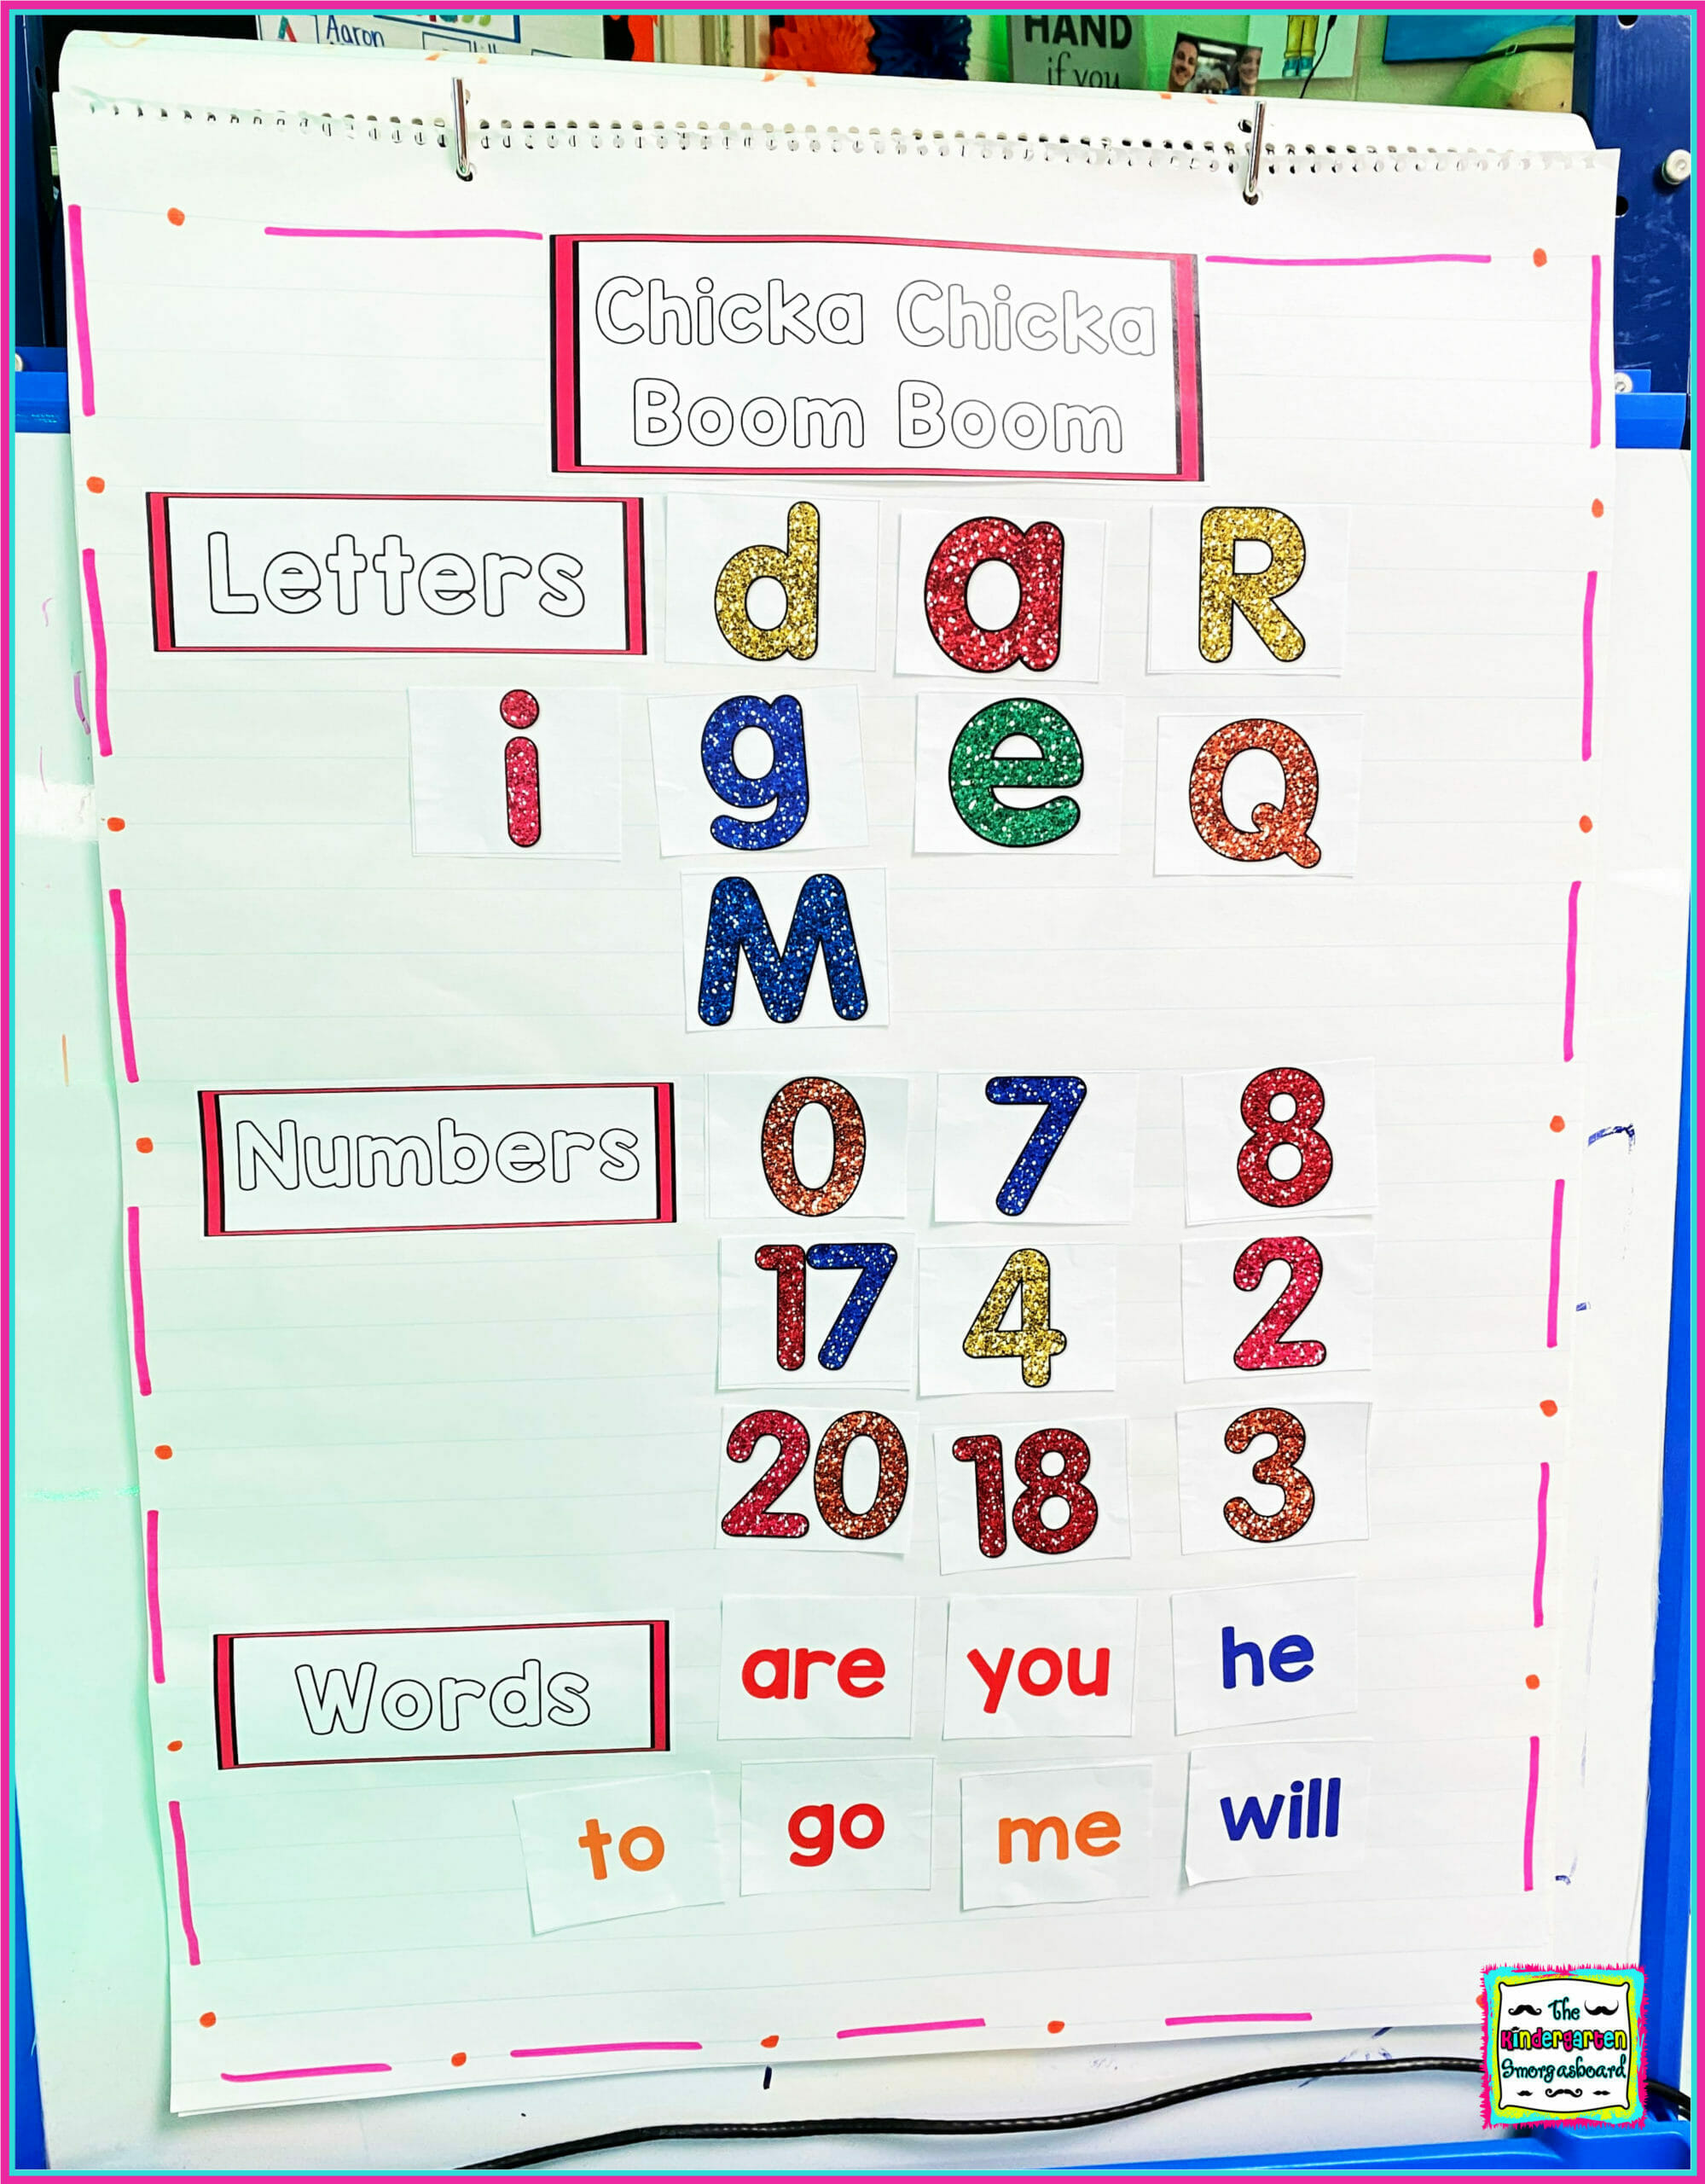 Aaron
HAND
if you
Chicka Chicka
Boom Boom
Letters d a R
i g e Q
M
Numbers 0 7 8
17 4 2
20 18 3
Words are you he
to go me will
The
Kindergarten
Smorgasboard